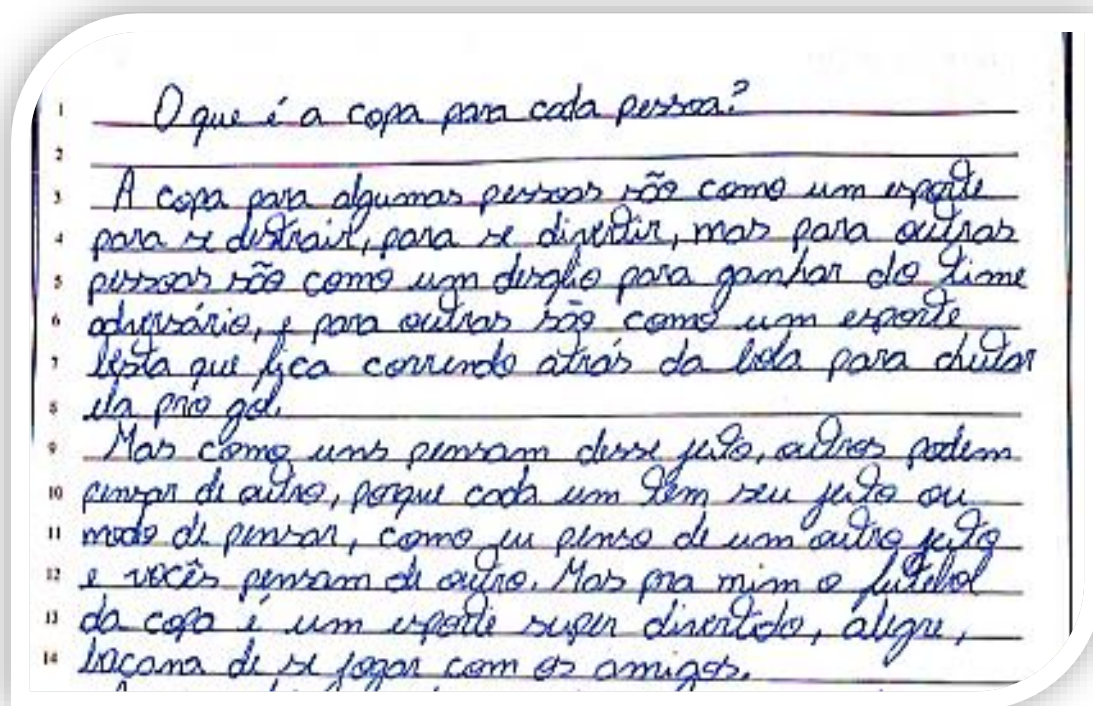 1 O que é a copa para cada pessoa?
2
3 A copa para algumas pessoas são como um esporte
4 para se distrair, para se divertir, mas para outras
5 pessoas são como um desafio para ganhar do time
6 adversário, e para outras são como um esporte
7 besta que fica correndo atrás da bola para chutar
8 ela pro gol.
9 Mas como uns pensam desse jeito, outros podem
10 pensar de outro, porque cada um tem seu jeito ou
11 modo de pensar, como eu penso de um outro jeito
12 e vocês pensam de outro. Mas pra mim o futebol
13 da copa é um esporte super divertido, alegre,
14 bacana de se jogar com os amigos.